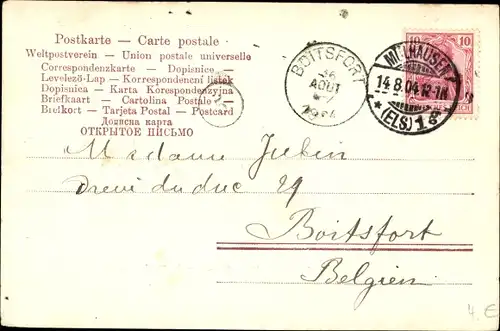 Postkarte — Carte postale
Weltpostverein — Union postale universelle
Correspondenzkarte — Dopisnice —
Levelező-Lap — Korrespondenční lístek
Dopisnica — Karta Korespondenzyjna
Briefkaart — Cartolina Postale
Brefkort — Tarjeta Postal — Postcard
Дописна карта
ОТКРЫТОЕ ПИСЬМО
BOITSFORT
AOUT
1904
10 10
MÜLHAUSEN
14.8.04.12-1N.
* (ELS) 1 g
Madame Jubin
du duc 29
Boitsfort
Belgien
4.€